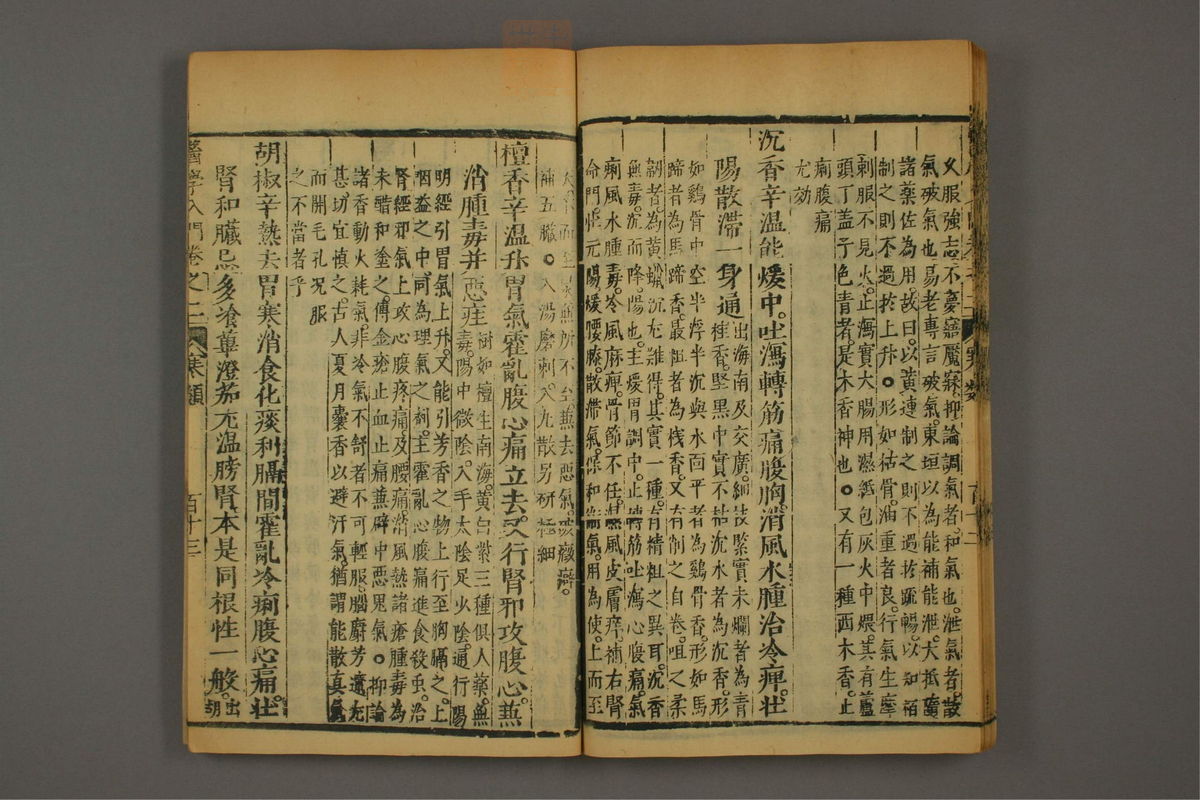 久服強志不夢寤魘寐抑論調氣者和氣也泄氣者散
氣破氣也易老專言破氣東垣以為能補能泄大抵隨
諸藥佐為用故曰以黃連制之則不過於疏暢以知栢
制之則不過於上升○形如枯骨油重者良行氣生摩
剌服不見火止瀉實大腸用濕紙包灰火中煨其有蘆
頭丁盖子色青者是木香神也○又有一種西木香止
痢腹痛
尤効
沉香辛溫能煖中吐瀉轉筋痛腹胸消風水腫治冷痺壯
陽散滯一身通
出海南及交廣細枝緊實未爛者為青
桂香堅黑中實不枯沉水者為沉香形
如鷄骨中空半浮半沉與水面平者為鷄骨香形如馬
蹄者為馬蹄香最粗者為棧香又有削之自卷咀之柔
韌者為黃蠟沉尤難得其實一種有精粗之異耳沉香
無毒沉而降陽也主煖胃調中止轉筋吐瀉心腹痛氣
痢風水腫毒冷風麻痺骨節不任濕風皮膚痒補右腎
命門壯元陽煖腰膝散滯氣保和衛氣用為使上而至
天下而至泉無所不至兼去惡氣破癥癖
補五臟○入湯磨剌入丸散另研極細
檀香辛溫升胃氣霍亂腹心痛立去又行腎邪攻腹心兼
消腫毒并惡疰
樹如檀生南海黃白紫三種俱入藥無
毒陽中微陰入手太陰足少陰通行陽
明經引胃氣上升又能引芳香之物上行至胸膈之上
咽嗌之中同為理氣之劑主霍亂心腹痛進食殺虫治
腎經邪氣上攻心腹疼痛及腰痛消風熱諸瘡腫毒為
末醋和塗之傅金瘡止血止痛兼辟中惡鬼氣○抑論
諸香動火耗氣非冷氣不舒者不可輕服腦麝芳竄尤
甚切宜慎之古人夏月囊香以避汗氣猶謂能散真氣
而開毛孔况服
之不當者乎
胡椒辛熱去胃寒消食化痰利膈間霍亂冷痢腹心痛壯
腎和臟忌多飡蓽澄茄尤温膀腎本是同根性一般
出
胡
醫學入門卷之二 寒類 百十三